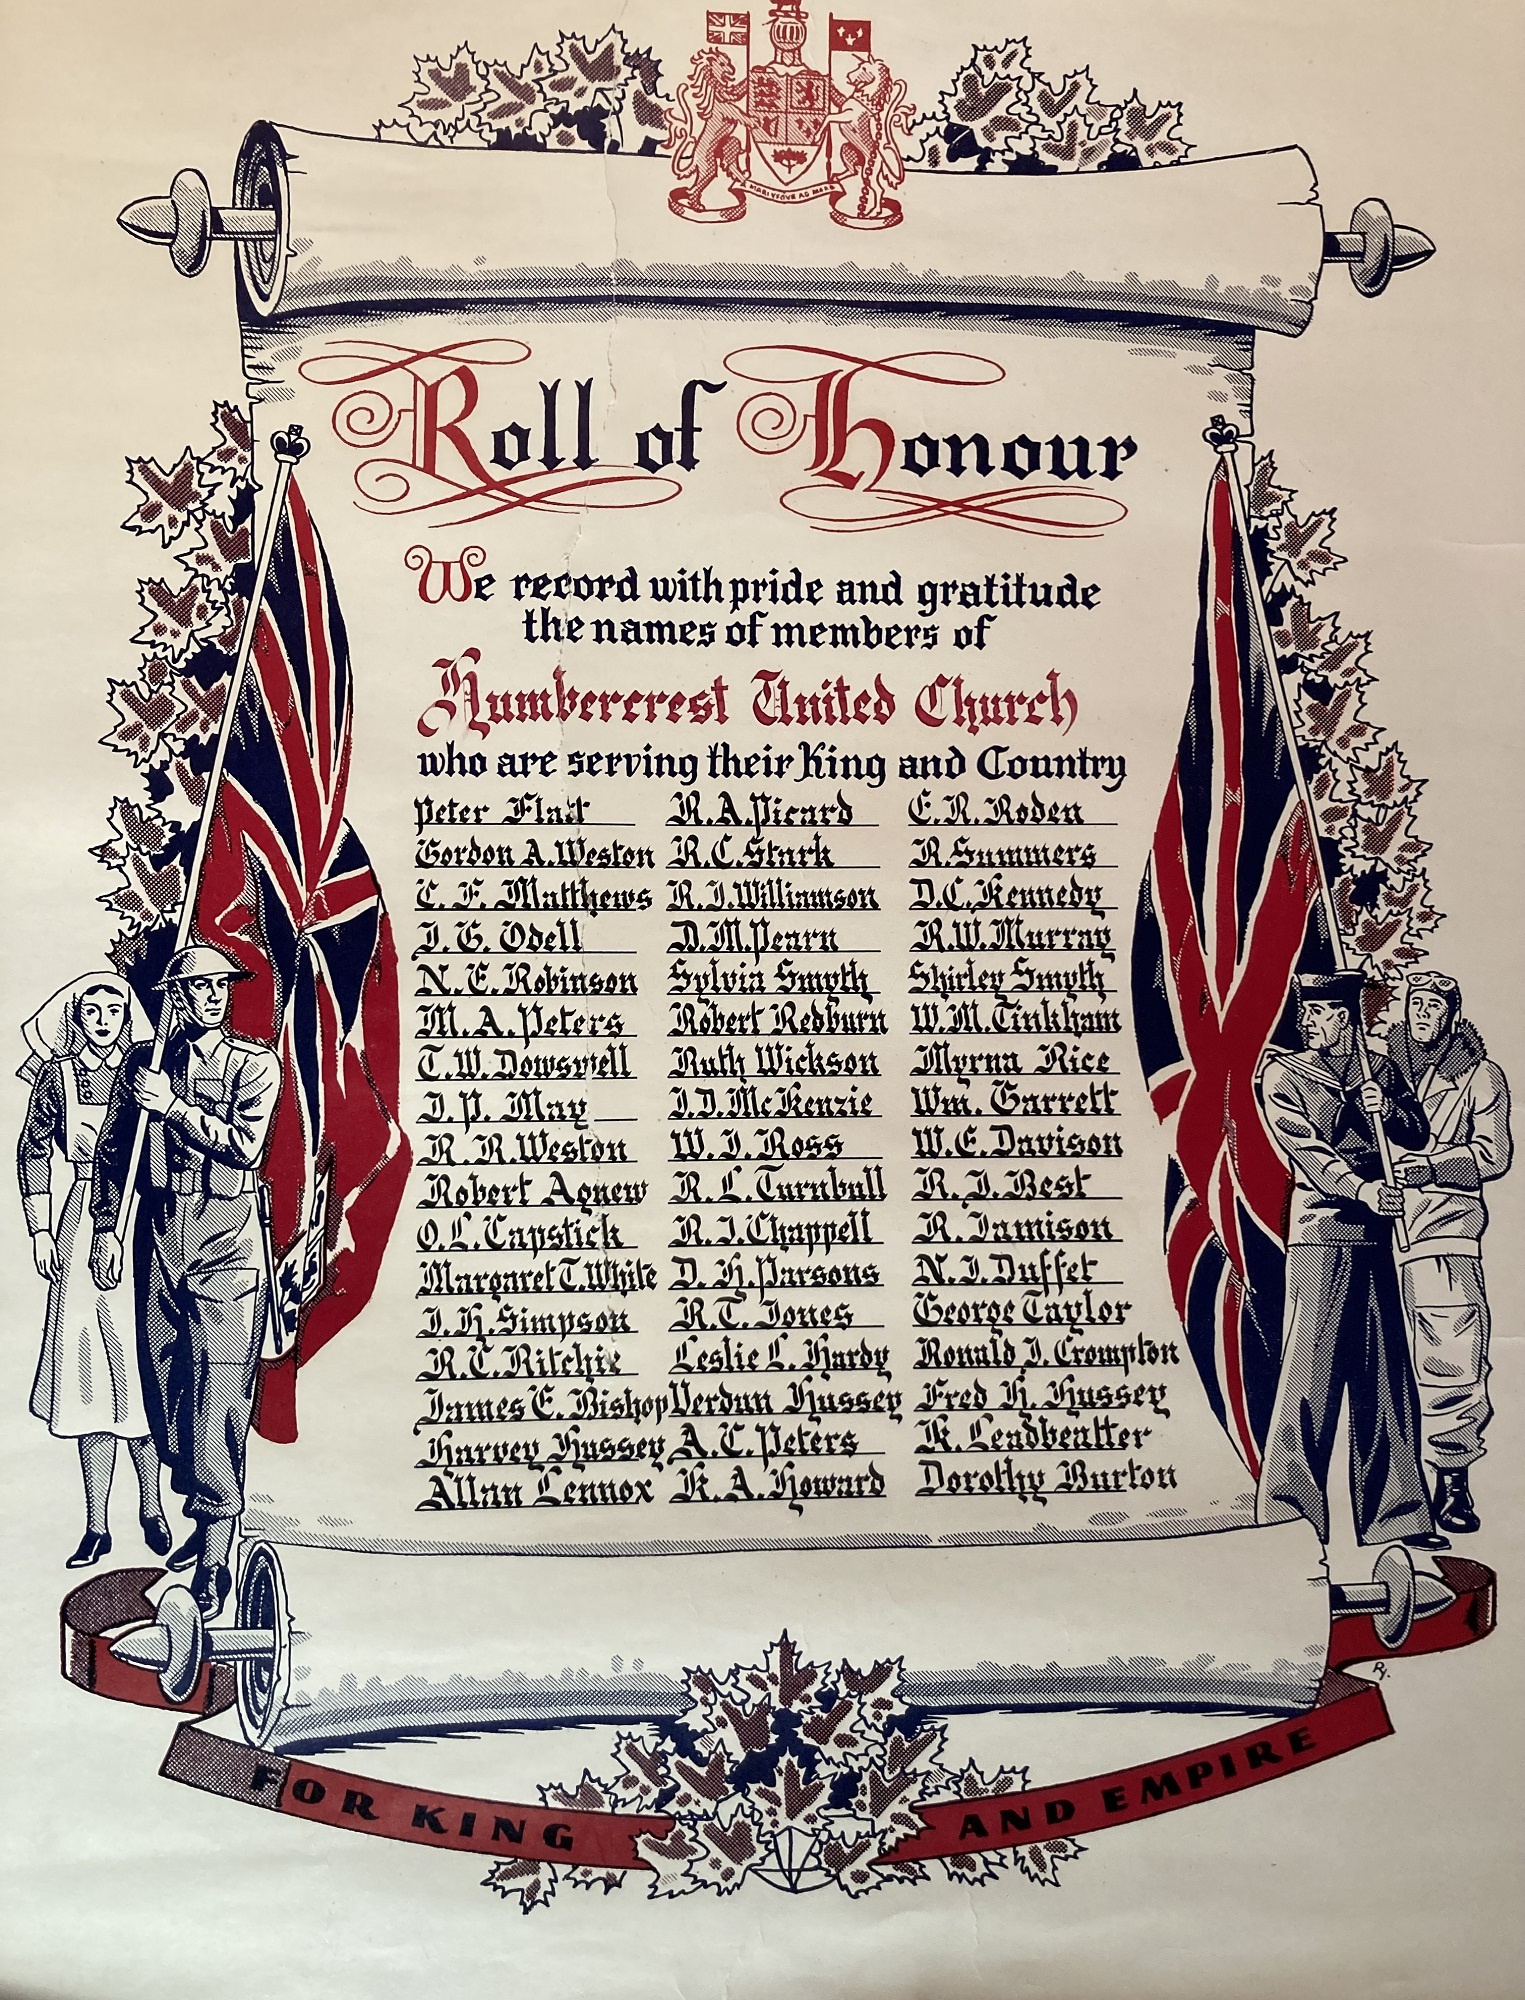 A MARI USQUE AD MARE
Roll of Honour
We record with pride and gratitude
the names of members of
Humbercrest United Church
who are serving their King and Country
Peter Flatt R.A.Picard E.R.Roden
Gordon A.Weston R.C.Stark R.Summers
C. F. Matthews R.J.Williamson D.C.Kennedy
J. G. Odell D.M.Pearn R.W.Murray
N. E. Robinson Sylvia Smyth Shirley Smyth
M. A. Peters Robert Redburn W.M.Tinkham
T.W. Dowswell Ruth Wickson Myrna Rice
J. P. May J.D.McKenzie Wm. Garrett
R. R.Weston W. J. Ross W.E.Davison
Robert Agnew R. L. Turnbull R. J. Best
O. L. Capstick R. J. Chappell R. Jamison
Margaret T.White D. H. Parsons N. J. Duffet
J. H. Simpson R.T. Jones George Taylor
R.C.Ritchie Leslie L. Hardy Ronald J. Crompton
James E. Bishop Verdun Hussey Fred H. Hussey
Harvey Hussey A. C. Peters K. Leadbeatter
Allan Lennox K. A. Howard Dorothy Burton
RJ.
FOR KING AND EMPIRE